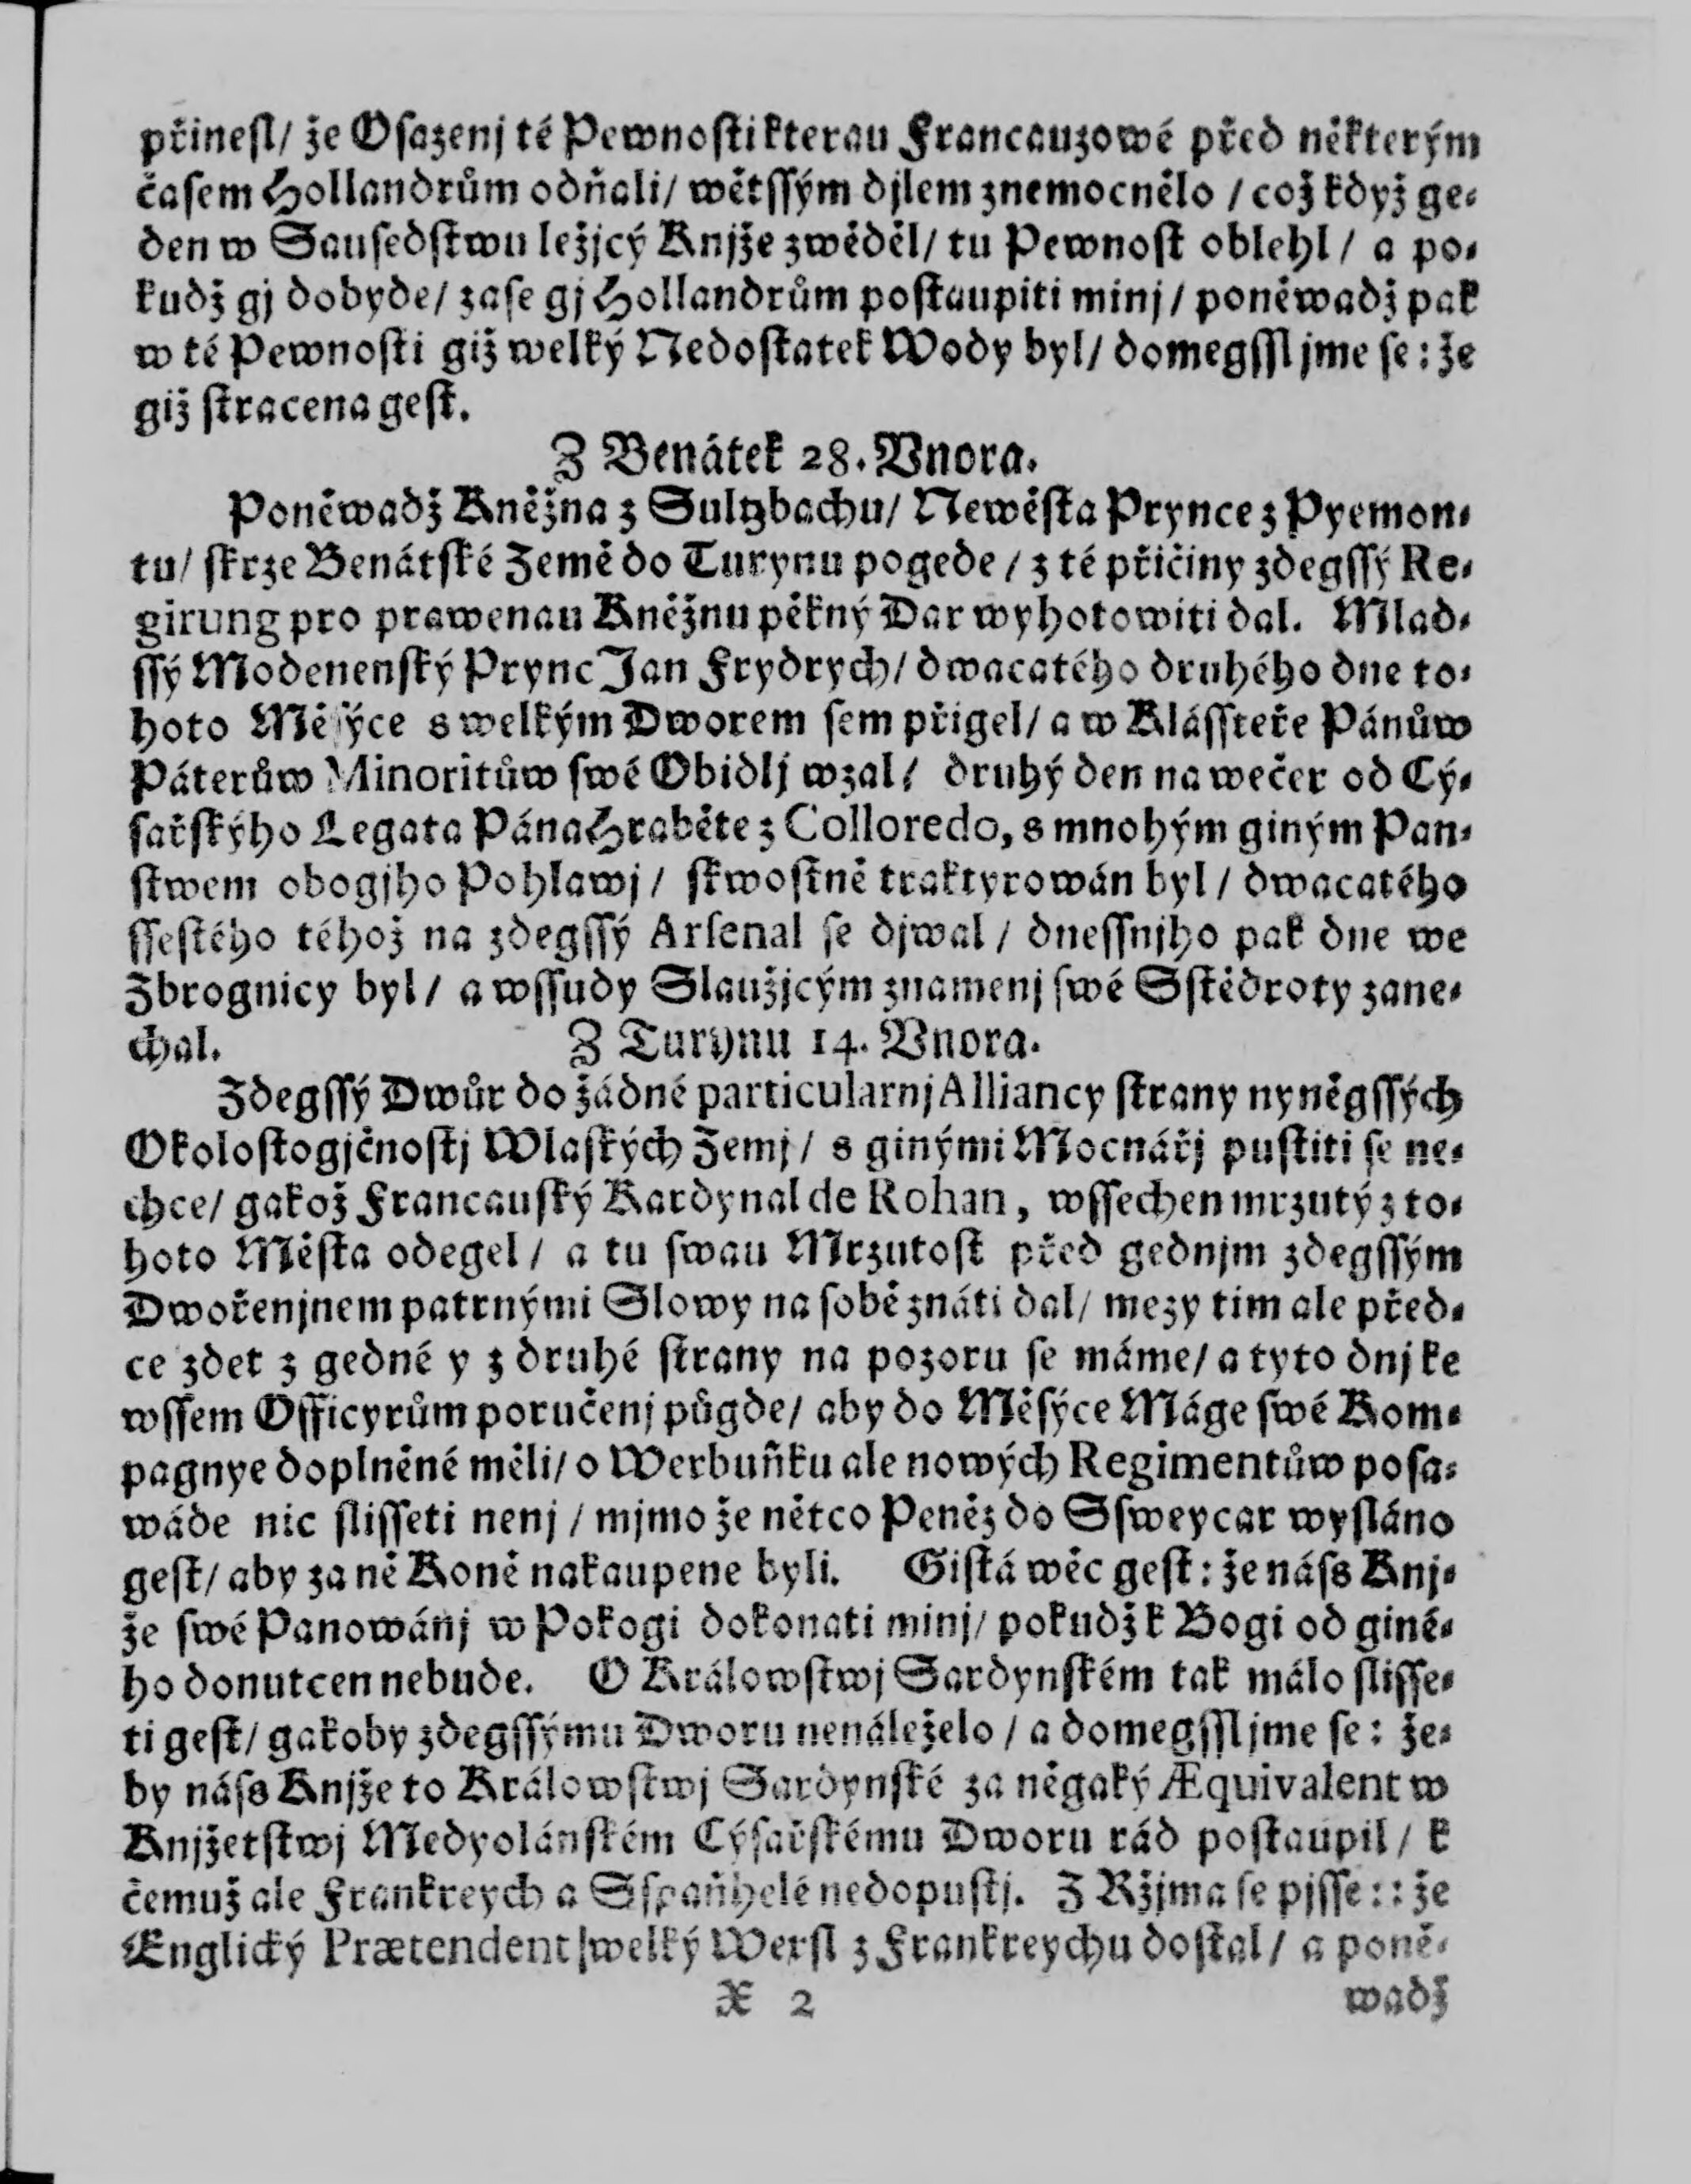 přineſl/ že Oſazenj té Pewnoſti kterau Francauzowé před některým
čaſem Hollandrům odňali/ wětſſým djlem znemocnělo / což když ge-
den w Sauſedſtwu ležjcý Knjže zwěděl/ tu Pewnoſt oblehl / a po-
kudž gj dobyde/ zaſe gj Hollandrům poſtaupiti minj / poněwadž pak
w té Pewnoſti giž welký Nedoſtatek Wody byl/ domegſſljme ſe: že
giž ſtracena geſt.
Z Benátek 28. Vnora.
Poněwadž Kněžna z Sultzbachu/ Newěſta Prynce z Pyemon-
tu/ ſkrze Benátſké Země do Turynu pogede / z té přičiny zdegſſý Re-
girung pro prawenau Kněžnu pěkný Dar wyhotowiti dal. Mlad-
ſſý Modenenſký Prync Jan Frydrych/ dwacatého druhého dne to-
hoto Měſýce s welkým Dworem ſem přigel/ a w Kláſſteře Pánůw
Páterůw Minoritůw ſwé Obidlj wzal/ druhý den na wečer od Cý-
ſařſkýho Legata Pána Hraběte z Colloredo, s mnohým giným Pan-
ſtwem obogjho Pohlawj / ſkwoſtně traktyrowán byl / dwacatého
ſſeſtého téhož na zdegſſý Arſenal ſe djwal / dneſſnjho pak dne we
Zbrognicy byl / a wſſudy Slaužjcým znamenj ſwé Sſtědroty zane-
chal.
Z Turynu 14. Vnora.
Zdegſſý Dwůr do žádné particularnj Alliancy ſtrany nyněgſſých
Okoloſtogjčnoſtj Wlaſkých Zemj / s ginými Mocnářj puſtiti ſe ne-
chce/ gakož Francauſký Kardynal de Rohan, wſſechen mrzutý z to-
hoto Měſta odegel / a tu ſwau Mrzutoſt před gednjm zdegſſým
Dwořenjnem patrnými Slowy na ſobě znáti dal/ mezy tim ale před-
ce zdet z gedné y z druhé ſtrany na pozoru ſe máme/ a tyto dnj ke
wſſem Officyrům poručenj půgde/ aby do Měſýce Máge ſwé Kom-
pagnye doplněné měli/ o Werbuňku ale nowých Regimentůw poſa-
wáde nic ſliſſeti nenj / mjmo že nětco Peněz do Sſweycar wyſláno
geſt/ aby za ně Koně nakaupene byli. Giſtá wěc geſt: že náſs Knj-
že ſwé Panowánj w Pokogi dokonati minj/ pokudž k Bogi od giné-
ho donutcen nebude. O Králowſtwj Sardynſkém tak málo ſliſſe-
ti geſt/ gakoby zdegſſýmu Dworu nenáleželo / a domegſſljme ſe: že-
by náſs Knjže to Králowſtwj Sardynſké za něgaký Æquivalent w
Knjžetſtwj Medyolánſkém Cýſařſkému Dworu rád poſtaupil / k
čemuž ale Frankreych a Sſpaňhelé nedopuſtj. Z Ržjma ſe pjſſe:: že
Englický Prætendent welký Werſl z Frankreychu doſtal / a poně-
X 2 wadž